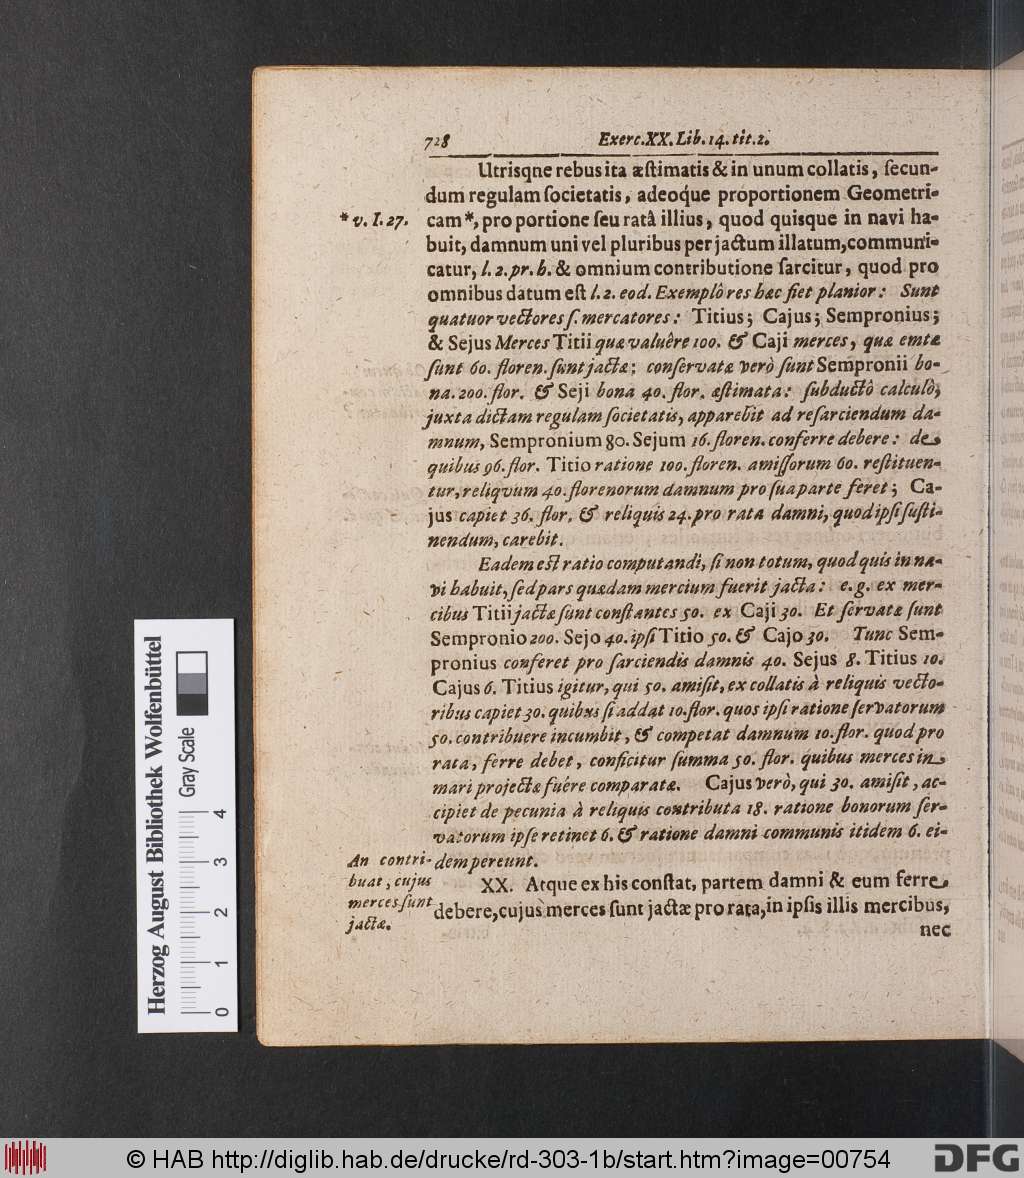 728 Exerc.XX. Lib. 14. tit.2.
Utrisqne rebus ita æstimatis & in unum collatis, ſecun-
dum regulam ſocietatis, adeoque proportionem Geometri-
* v. I. 27.
cam*, pro portione ſeu ratâ illius, quod quisque in navi ha-
buit, damnum uni vel pluribus per jactum illatum, communi-
catur, l. 2. pr. h. & omnium contributione ſarcitur, quod pro
omnibus datum eſt l. 2. eod. Exemplô res hæc fiet planior: Sunt
quatuor vectores ſ. mercatores: Titius; Cajus; Sempronius;
& Sejus Merces Titii quæ valuêre 100. & Caji merces, quæ emtæ
ſunt 60. floren. ſunt jactæ; conſervatæ verò ſunt Sempronii bo-
na. 200. flor. & Seji bona 40. flor. æſtimata: ſubductô calculô,
juxta dictam regulam ſocietatis, apparebit ad reſarciendum da-
mnum, Sempronium 80. Sejum 16. floren. conferre debere: de
quibus 96. flor. Titio ratione 100. floren. amiſſorum 60. reſtituen-
tur, reliqvum 40. florenorum damnum pro ſua parte feret; Ca-
jus capiet 36. flor. & reliquis 24. pro rata damni, quod ipſi ſuſti-
nendum, carebit.
Eadem eſt ratio computandi, ſi non totum, quod quis in na-
vi habuit, ſed pars quædam mercium fuerit jacta: e. g. ex mer-
cibus Titii jactæ ſunt conſtantes 50. ex Caji 30. Et ſervatæ ſunt
Sempronio 200. Sejo 40. ipſi Titio 50. & Cajo 30. Tunc Sem-
pronius conferet pro ſarciendis damnis 40. Sejus 8. Titius 10.
Cajus 6. Titius igitur, qui 50. amiſit, ex collatis à reliquis vecto-
ribus capiet 30. quibus ſi addat 10. flor. quos ipſi ratione ſervatorum
50. contribuere incumbit, & competat damnum 10. flor. quod pro
rata, ferre debet, conficitur ſumma 50. flor. quibus merces in
mari projectæ fuére comparatæ. Cajus verò, qui 30. amiſit, ac-
cipiet de pecunia à reliquis contributa 18. ratione bonorum ſer-
vatorum ipſe retinet 6. & ratione damni communis itidem 6. ei-
dem pereunt.
An contri-
buat, cujus
merces ſunt
jactæ.
XX. Atque ex his conſtat, partem damni & eum ferre
debere, cujus merces ſunt jactæ pro rata, in ipſis illis mercibus,
nec
Herzog August Bibliothek Wolfenbüttel
Gray Scale
0 1 2 3 4
© HAB http://diglib.hab.de/drucke/rd-303-1b/start.htm?image=00754
DFG